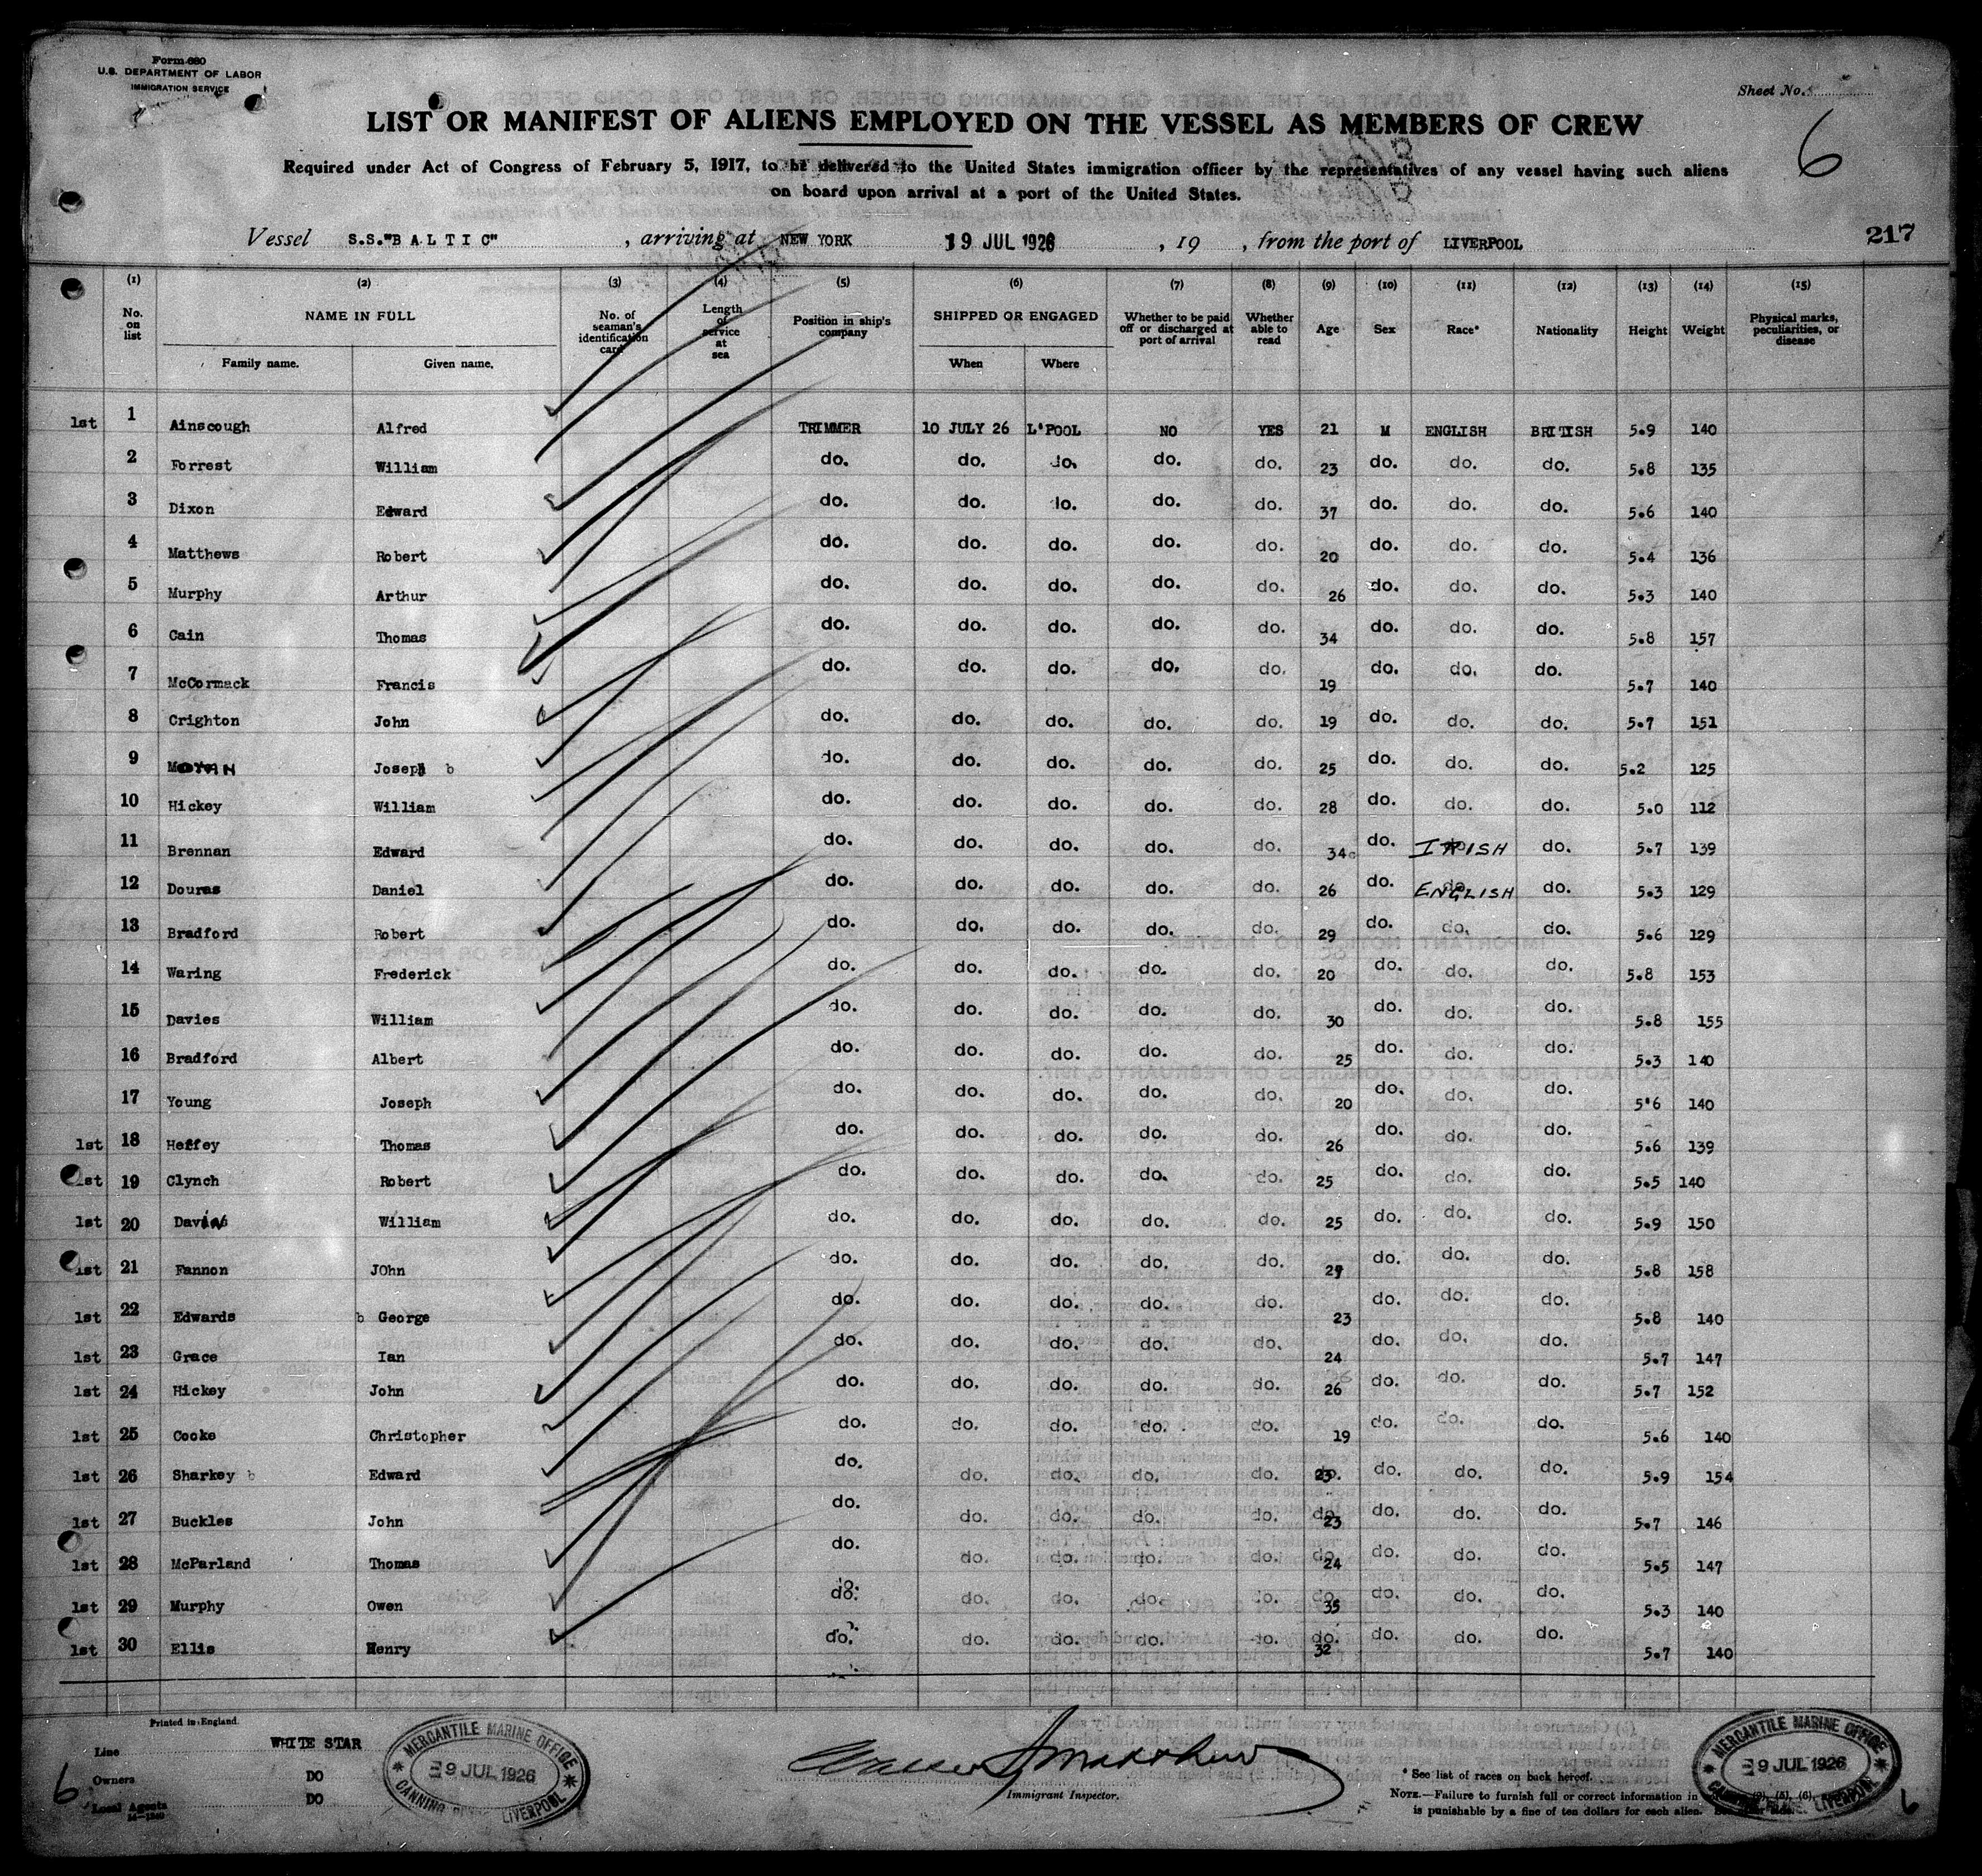 Form 680
U.S. DEPARTMENT OF LABOR
IMMIGRATION SERVICE
Sheet No.
6
LIST OR MANIFEST OF ALIENS EMPLOYED ON THE VESSEL AS MEMBERS OF CREW
Required under Act of Congress of February 5, 1917, to be delivered to the United States immigration officer by the representatives of any vessel having such aliens
on board upon arrival at a port of the United States.
Vessel S.S."BALTIC", arriving at NEW YORK 19 JUL 1926, 19 , from the port of LIVERPOOL 217
(1) (2) (3) (4) (5) (6) (7) (8) (9) (10) (11) (12) (13) (14) (15)
No. on list NAME IN FULL Family name. Given name. No. of seaman's identification card Length of service at sea Position in ship's company SHIPPED OR ENGAGED When Where Whether to be paid off or discharged at port of arrival Whether able to read Age Sex Race* Nationality Height Weight Physical marks, peculiarities, or disease
1st 1 Ainscough Alfred TRIMMER 10 JULY 26 L'POOL NO YES 21 M ENGLISH BRITISH 5.9 140
2 Forrest William do. do. do. do. do. 23 do. do. do. 5.8 135
3 Dixon Edward do. do. do. do. do. 37 do. do. do. 5.6 140
4 Matthews Robert do. do. do. do. do. 20 do. do. do. 5.4 136
5 Murphy Arthur do. do. do. do. do. 26 do. do. do. 5.3 140
6 Cain Thomas do. do. do. do. do. 34 do. do. do. 5.8 157
7 McCormack Francis do. do. do. do. do. 19 do. do. do. 5.7 140
8 Crighton John do. do. do. do. do. 19 do. do. do. 5.7 151
9 Joseph b do. do. do. do. do. 25 do. do. do. 5.2 125
10 Hickey William do. do. do. do. do. 28 do. do. do. 5.0 112
11 Brennan Edward do. do. do. do. do. 34 do. IRISH do. 5.7 139
12 Douras Daniel do. do. do. do. do. 26 do. ENGLISH do. 5.3 129
13 Bradford Robert do. do. do. do. do. 29 do. do. do. 5.6 129
14 Waring Frederick do. do. do. do. do. 20 do. do. do. 5.8 153
15 Davies William do. do. do. do. do. 30 do. do. do. 5.8 155
16 Bradford Albert do. do. do. do. do. 25 do. do. do. 5.3 140
17 Young Joseph do. do. do. do. do. 20 do. do. do. 5'6 140
1st 18 Heffey Thomas do. do. do. do. do. 26 do. do. do. 5.6 139
1st 19 Clynch Robert do. do. do. do. do. 25 do. do. do. 5.5 140
1st 20 William do. do. do. do. do. 25 do. do. do. 5.9 150
1st 21 Fannon JOhn do. do. do. do. do. 29 do. do. do. 5.8 158
1st 22 Edwards b George do. do. do. do. do. 23 do. do. do. 5.8 140
1st 23 Grace Ian do. do. do. do. do. 24 do. do. do. 5.7 147
1st 24 Hickey John do. do. do. do. do. 26 do. do. do. 5.7 152
1st 25 Cooke Christopher do. do. do. do. do. 19 do. do. do. 5.6 140
1st 26 Sharkey b Edward do. do. do. do. do. 23 do. do. do. 5.9 154
1st 27 Buckles John do. do. do. do. do. do. 23 do. do. do. 5.7 146
1st 28 McParland Thomas do. do. do. do. do. do. 24 do. do. do. 5.5 147
1st 29 Murphy Owen do. do. do. do. do. do. 35 do. do. do. 5.3 140
1st 30 Ellis Henry do. do. do. do. do. do. 32 do. do. do. 5.7 140
Printed in England.
Line WHITE STAR
Owners DO
Local Agents DO
14—1240
6
MERCANTILE MARINE OFFICE
9 JUL 1926
CANNING PLACE LIVERPOOL
Immigrant Inspector.
* See list of races on back hereof.
NOTE.—Failure to furnish full or correct information in (5), (6),
is punishable by a fine of ten dollars for each alien.
MERCANTILE MARINE OFFICE
9 JUL 1926
CANNING PLACE LIVERPOOL
6